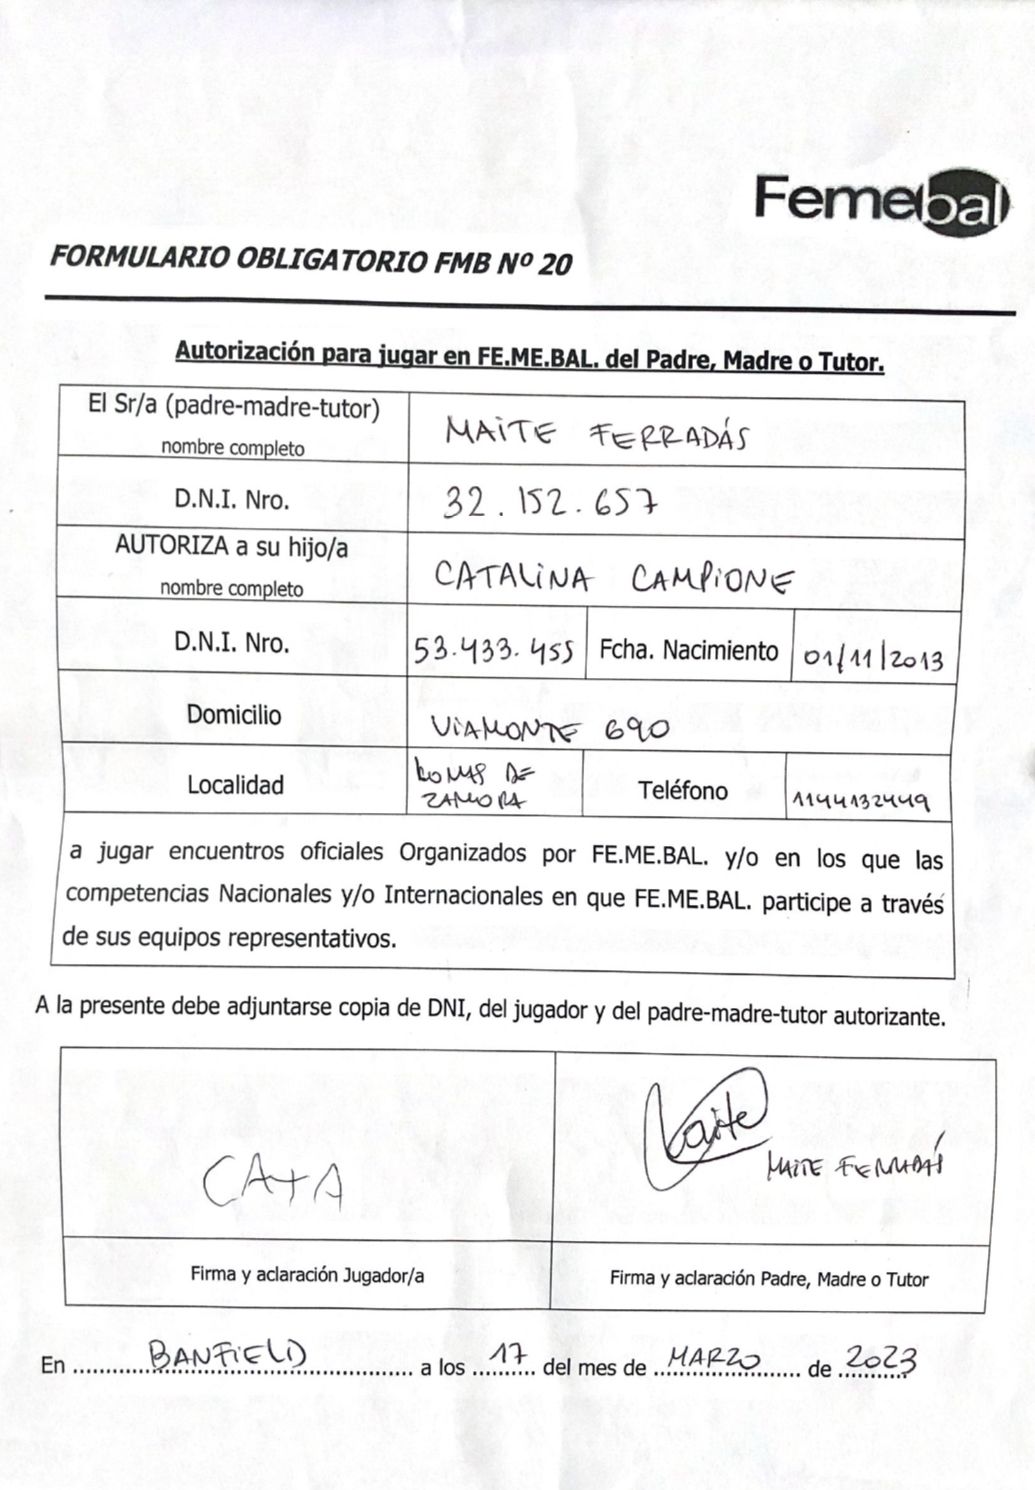 Femebal
FORMULARIO OBLIGATORIO FMB Nº 20
Autorización para jugar en FE.ME.BAL. del Padre, Madre o Tutor.
El Sr/a (padre-madre-tutor)
nombre completo
MAITE FERRADÁS
D.N.I. Nro.
32.152.657
AUTORIZA a su hijo/a
nombre completo
CATALINA CAMPIONE
D.N.I. Nro.
53.433.455
Fcha. Nacimiento
01/11/2013
Domicilio
VIAMONTE 690
Localidad
LOMAS DE
ZAMORA
Teléfono
1144132449
a jugar encuentros oficiales Organizados por FE.ME.BAL. y/o en los que las
competencias Nacionales y/o Internacionales en que FE.ME.BAL. participe a través
de sus equipos representativos.
A la presente debe adjuntarse copia de DNI, del jugador y del padre-madre-tutor autorizante.
CATA
Maite
MAITE FERRADÁS
Firma y aclaración Jugador/a
Firma y aclaración Padre, Madre o Tutor
En BANFIELD a los 17 del mes de MARZO de 2023